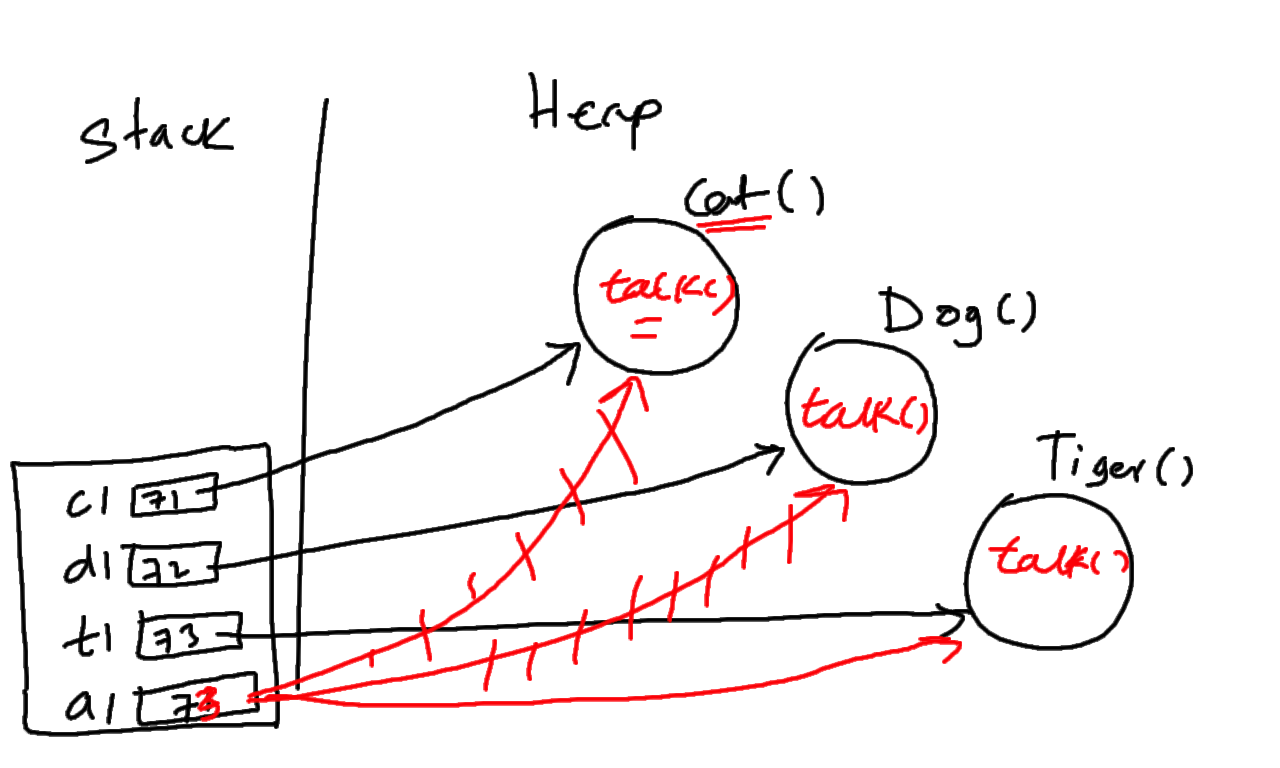 Stack
Heap
Cat()
talk()
Dog()
talk()
Tiger()
talk()
c1 71
d1 72
t1 73
a1 73